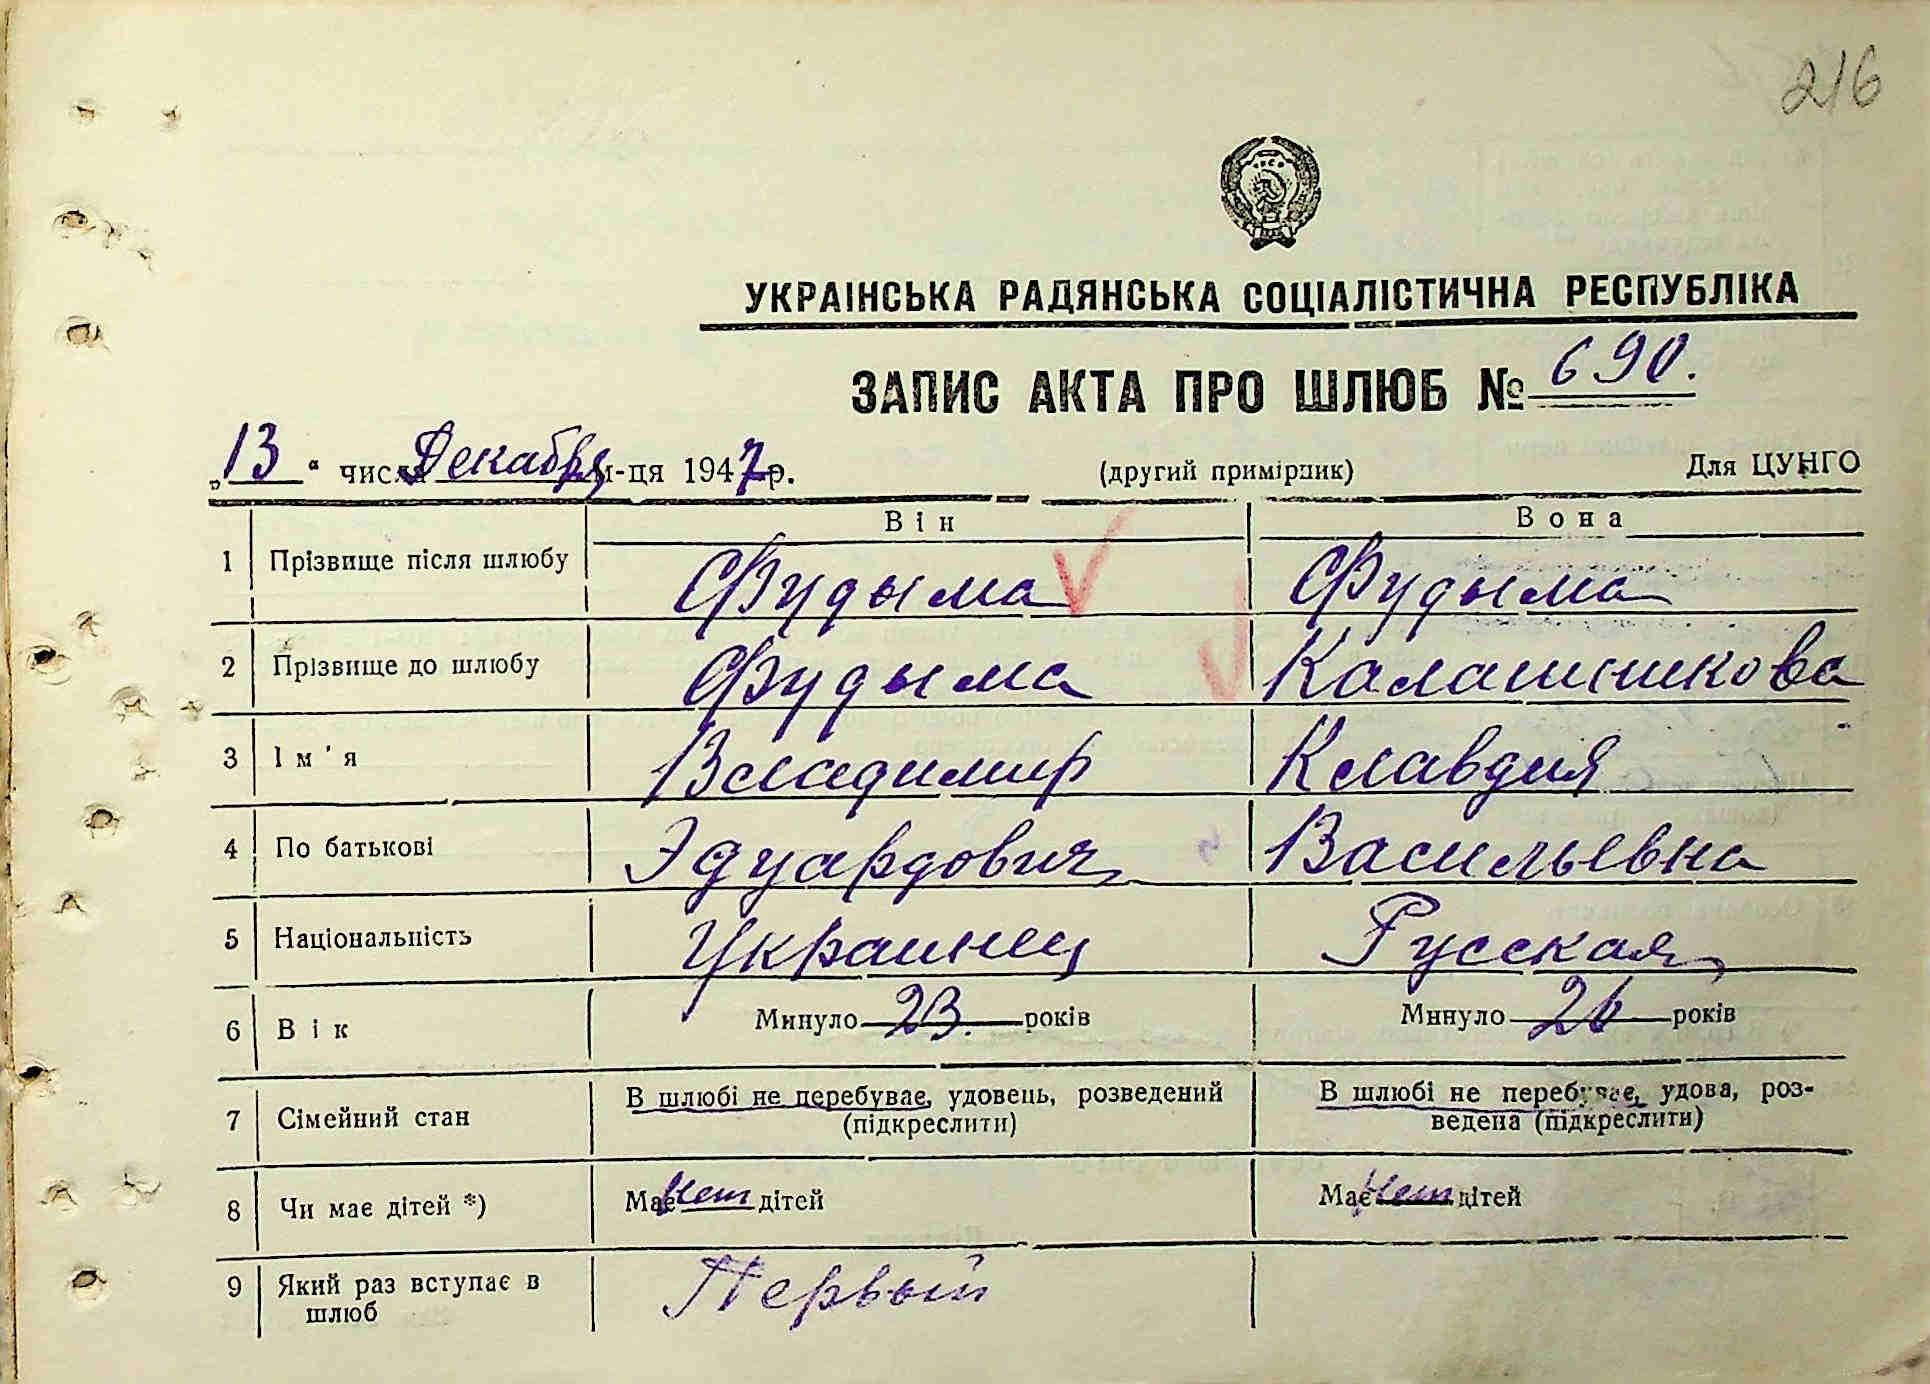 216
УКРАІНСЬКА РАДЯНСЬКА СОЦІАЛІСТИЧНА РЕСПУБЛІКА
ЗАПИС АКТА ПРО ШЛЮБ № 690.
„13“ числа Декабря м-ця 1947 р. (другий примірник) Для ЦУНГО
Він Вона
1 Прізвище після шлюбу Фудыма Фудыма
2 Прізвище до шлюбу Фудыма Калашникова
3 Ім'я Владимир Клавдия
4 По батькові Эдуардович Васильевна
5 Національність Украинец Русская
6 Вік Минуло 23. років Минуло 26 років
7 Сімейний стан В шлюбі не перебуває, удовець, розведений (підкреслити) В шлюбі не перебуває, удова, роз-
ведена (підкреслити)
8 Чи має дітей *) Має нет дітей Має нет дітей
9 Який раз вступає в Первый
шлюб